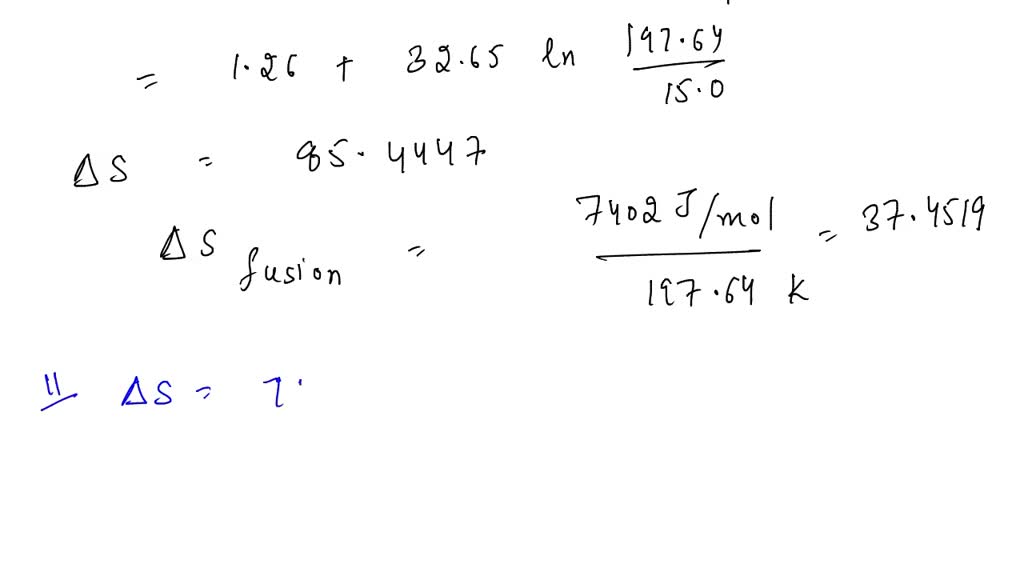 = 1.26 + 32.65 ln 197.64 / 15.0
ΔS = 85.4447
ΔS fusion = 7402 J/mol / 197.64 K = 37.4519
11 ΔS = 7.